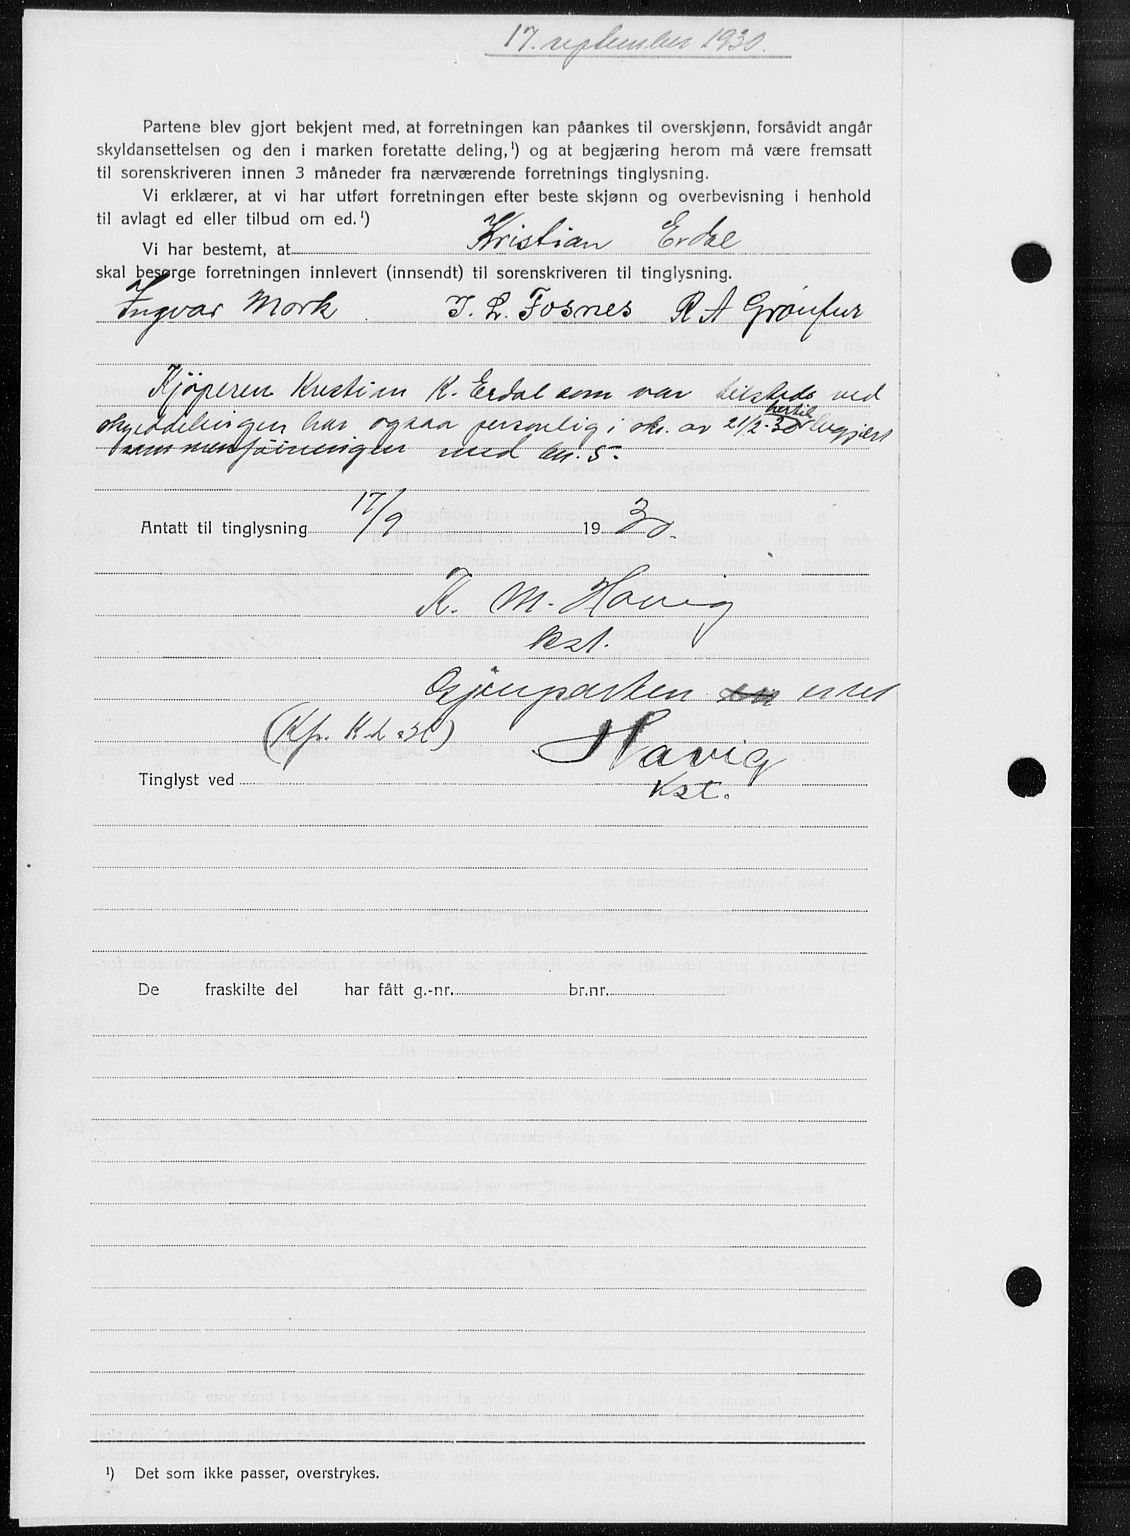 17. september 1930.
Partene blev gjort bekjent med, at forretningen kan påankes til overskjønn, forsåvidt angår
skyldansettelsen og den i marken foretatte deling,¹) og at begjæring herom må være fremsatt
til sorenskriveren innen 3 måneder fra nærværende forretnings tinglysning.
Vi erklærer, at vi har utført forretningen efter beste skjønn og overbevisning i henhold
til avlagt ed eller tilbud om ed.¹)
Vi har bestemt, at Kristian Erdal
skal besørge forretningen innlevert (innsendt) til sorenskriveren til tinglysning.
Ingvar Mork J. L. Fosnes R A
Kjøperen Kristian K. Erdal som var tilstede ved
skylddelingen har ogsaa personlig i skr. av 21/2-30 hertil begjært
sammenføiningen med bn. 5.
Antatt til tinglysning 17/9 1930.
K. M. Havig
kst.
Gjenparten
(Kfr.
Havig
kst.
Tinglyst ved
De fraskilte del har fått g.-nr. br.nr.
¹) Det som ikke passer, overstrykes.